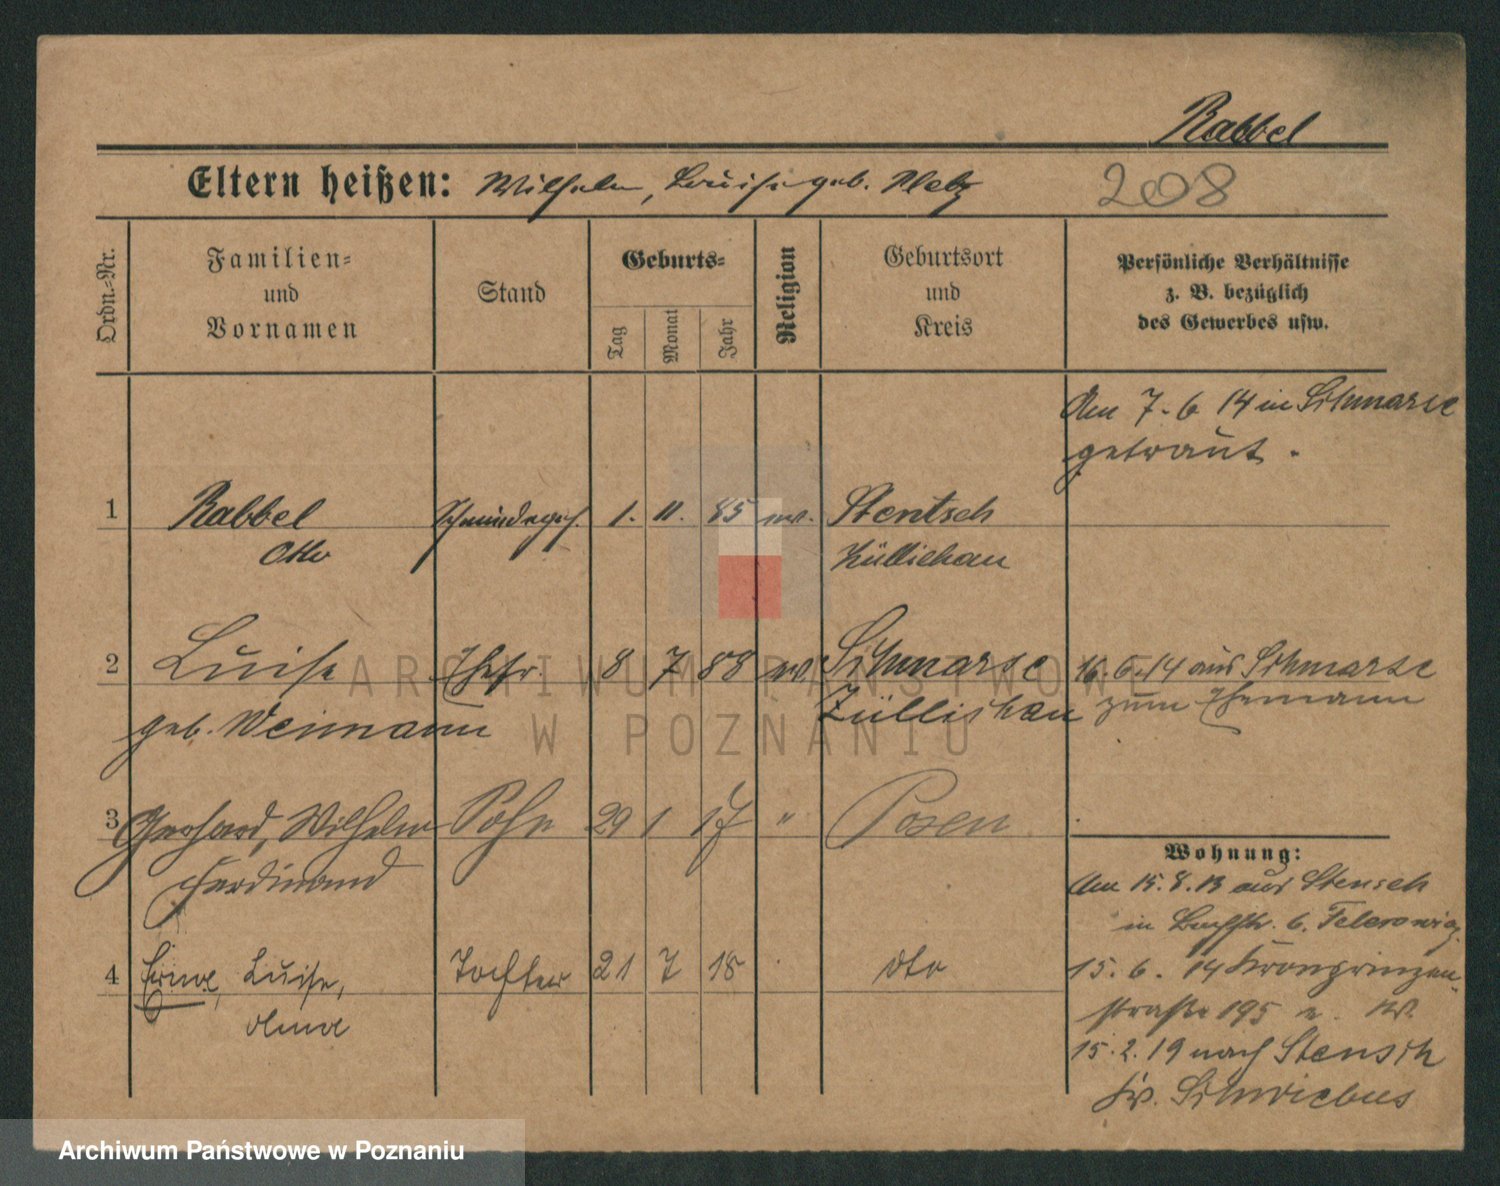 Rabbel
Eltern heißen: Wilhelm, Luise geb. Platz
208
Ordn.-Nr.
Familien-
und
Vornamen
Stand
Geburts-
Tag
Monat
Jahr
Religion
Geburtsort
und
Kreis
Persönliche Verhältnisse
z. B. bezüglich
des Gewerbes usw.
Am 7. 6 14 in Schmarse
getraut.
1 Rabbel 1. 11. 85 ev. Stentsch
Otto Züllichau
2 Luise Ehefr. 8 7 88 ev. Schmarse 16. 6. 14 aus Schmarse
geb. Weimann Züllichau zum Ehemann
3 Gerhard, Wilhelm Sohn 29 1 17 " Posen
Ferdinand
Wohnung:
Am 15. 8. 13 aus Stensch
in 6.
4 Erna, Luise, Tochter 21 7 18 dto
Olma
15. 6. 14 Kronprinzen-
straße 195
15. 2. 19 nach Stensch
Kr. Schwiebus
ARCHIWUM PAŃSTWOWE
W POZNANIU
Archiwum Państwowe w Poznaniu